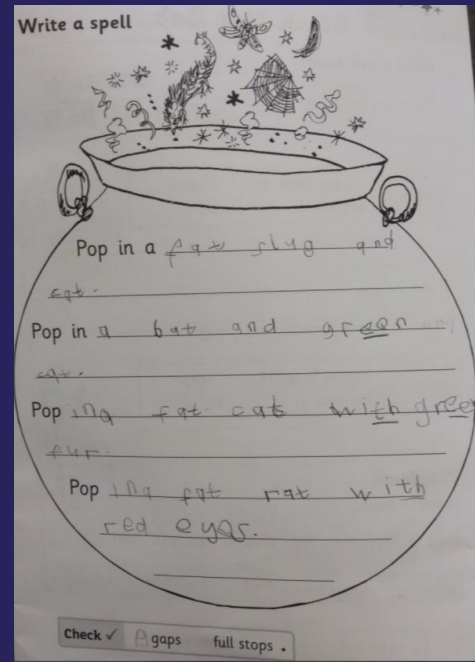 Write a spell
Pop in a fat slug and
cat.
Pop in a bat and green
cat.
Pop in a fat cat with green
fur.
Pop in a fat rat with
red eyes.
Check ✓ A gaps full stops .